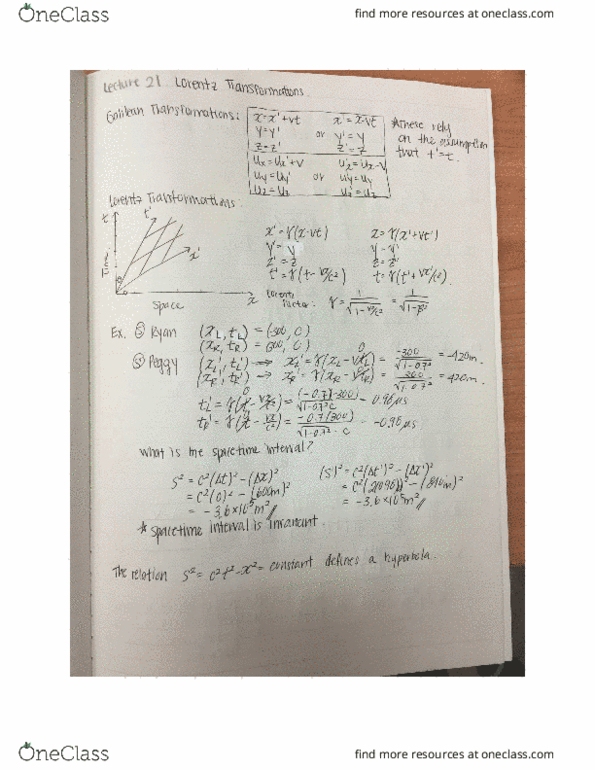 OneClass find more resources at oneclass.com
Lecture 21 Lorentz Transformations
Galilean Transformations:
x=x'+vt x'=x-vt
y=y' or y'=y
z=z' z'=z
*these rely on the assumption that t'=t.
ux=ux'+v u'x=ux-v
uy=uy' or u'y=uy
uz=uz u'z=uz
Lorentz Tranformations:
t t' x'
Time
Space x
x'=γ(x-vt) x=γ(x'+vt')
y'=y y=y'
z'=z z=z'
t'=γ(t-vx/c²) t=γ(t'+vx'/c²)
Lorentz factor: γ= 1/√(1-v²/c²) = 1/√(1-β²)
Ex. Ⓢ Ryan (xL, tL) = (-300, 0)
(xR, tR) = (300, 0)
Ⓢ' Peggy (xL', tL') → xL'=γ(xL-vtL) = -300/√(1-0.7²) = -420m
(xR', tR') → xR'=γ(xR-vtR) = 300/√(1-0.7²) = 420m
tL'=γ(t-vx/c²) = (-0.7)(-300)/√(1-0.7²)c = 0.98 μs
tR'=γ(t-vx/c²) = -0.7(300)/√(1-0.7²)·c = -0.98 μs
What is the spacetime interval?
S²=c²(Δt)²-(Δx)² (S')²=c²(Δt')²-(Δx')²
=c²(0)²-(600m)² =c²(2(0.98))²-(840m)²
=-3.6×10⁵m² =-3.6×10⁵m²
* spacetime interval is invariant
The relation S²=c²t²-x²=constant defines a hyperbola.
OneClass find more resources at oneclass.com